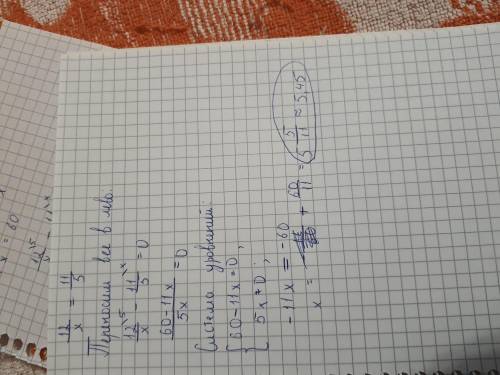 12/x = 11/5
Переносим все в лево.
12\5/x - 11\x/5 = 0
60-11x/5x = 0
Система уравнений:
{60-11x=0;
{5x≠0;
-11x = -60
x = + 60/11 = 5 5/11 ≈ 5,45
x = 60